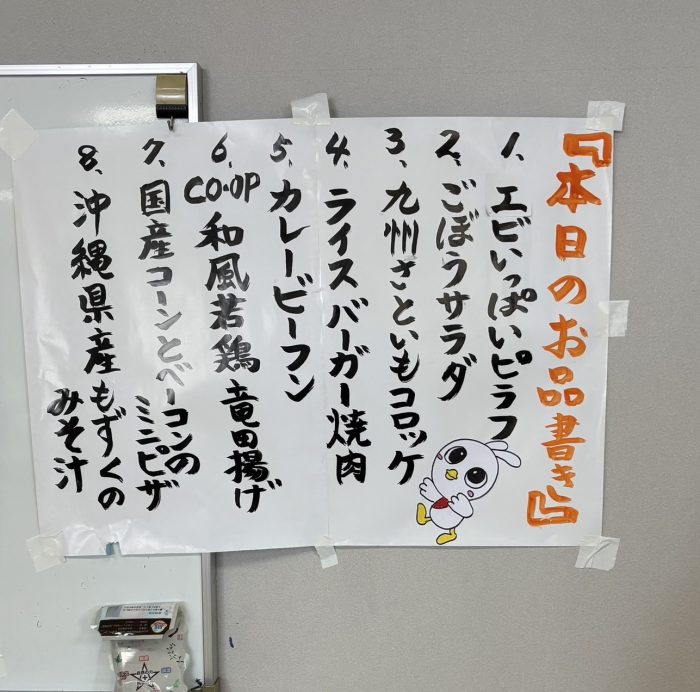 『本日のお品書き』
1、エビいっぱいピラフ
2、ごぼうサラダ
3、九州さといもコロッケ
4、ライスバーガー焼肉
5、カレービーフン
6、CO・OP和風若鶏竜田揚げ
7、国産コーンとベーコンの
ミニピザ
8、沖縄県産もずくの
みそ汁